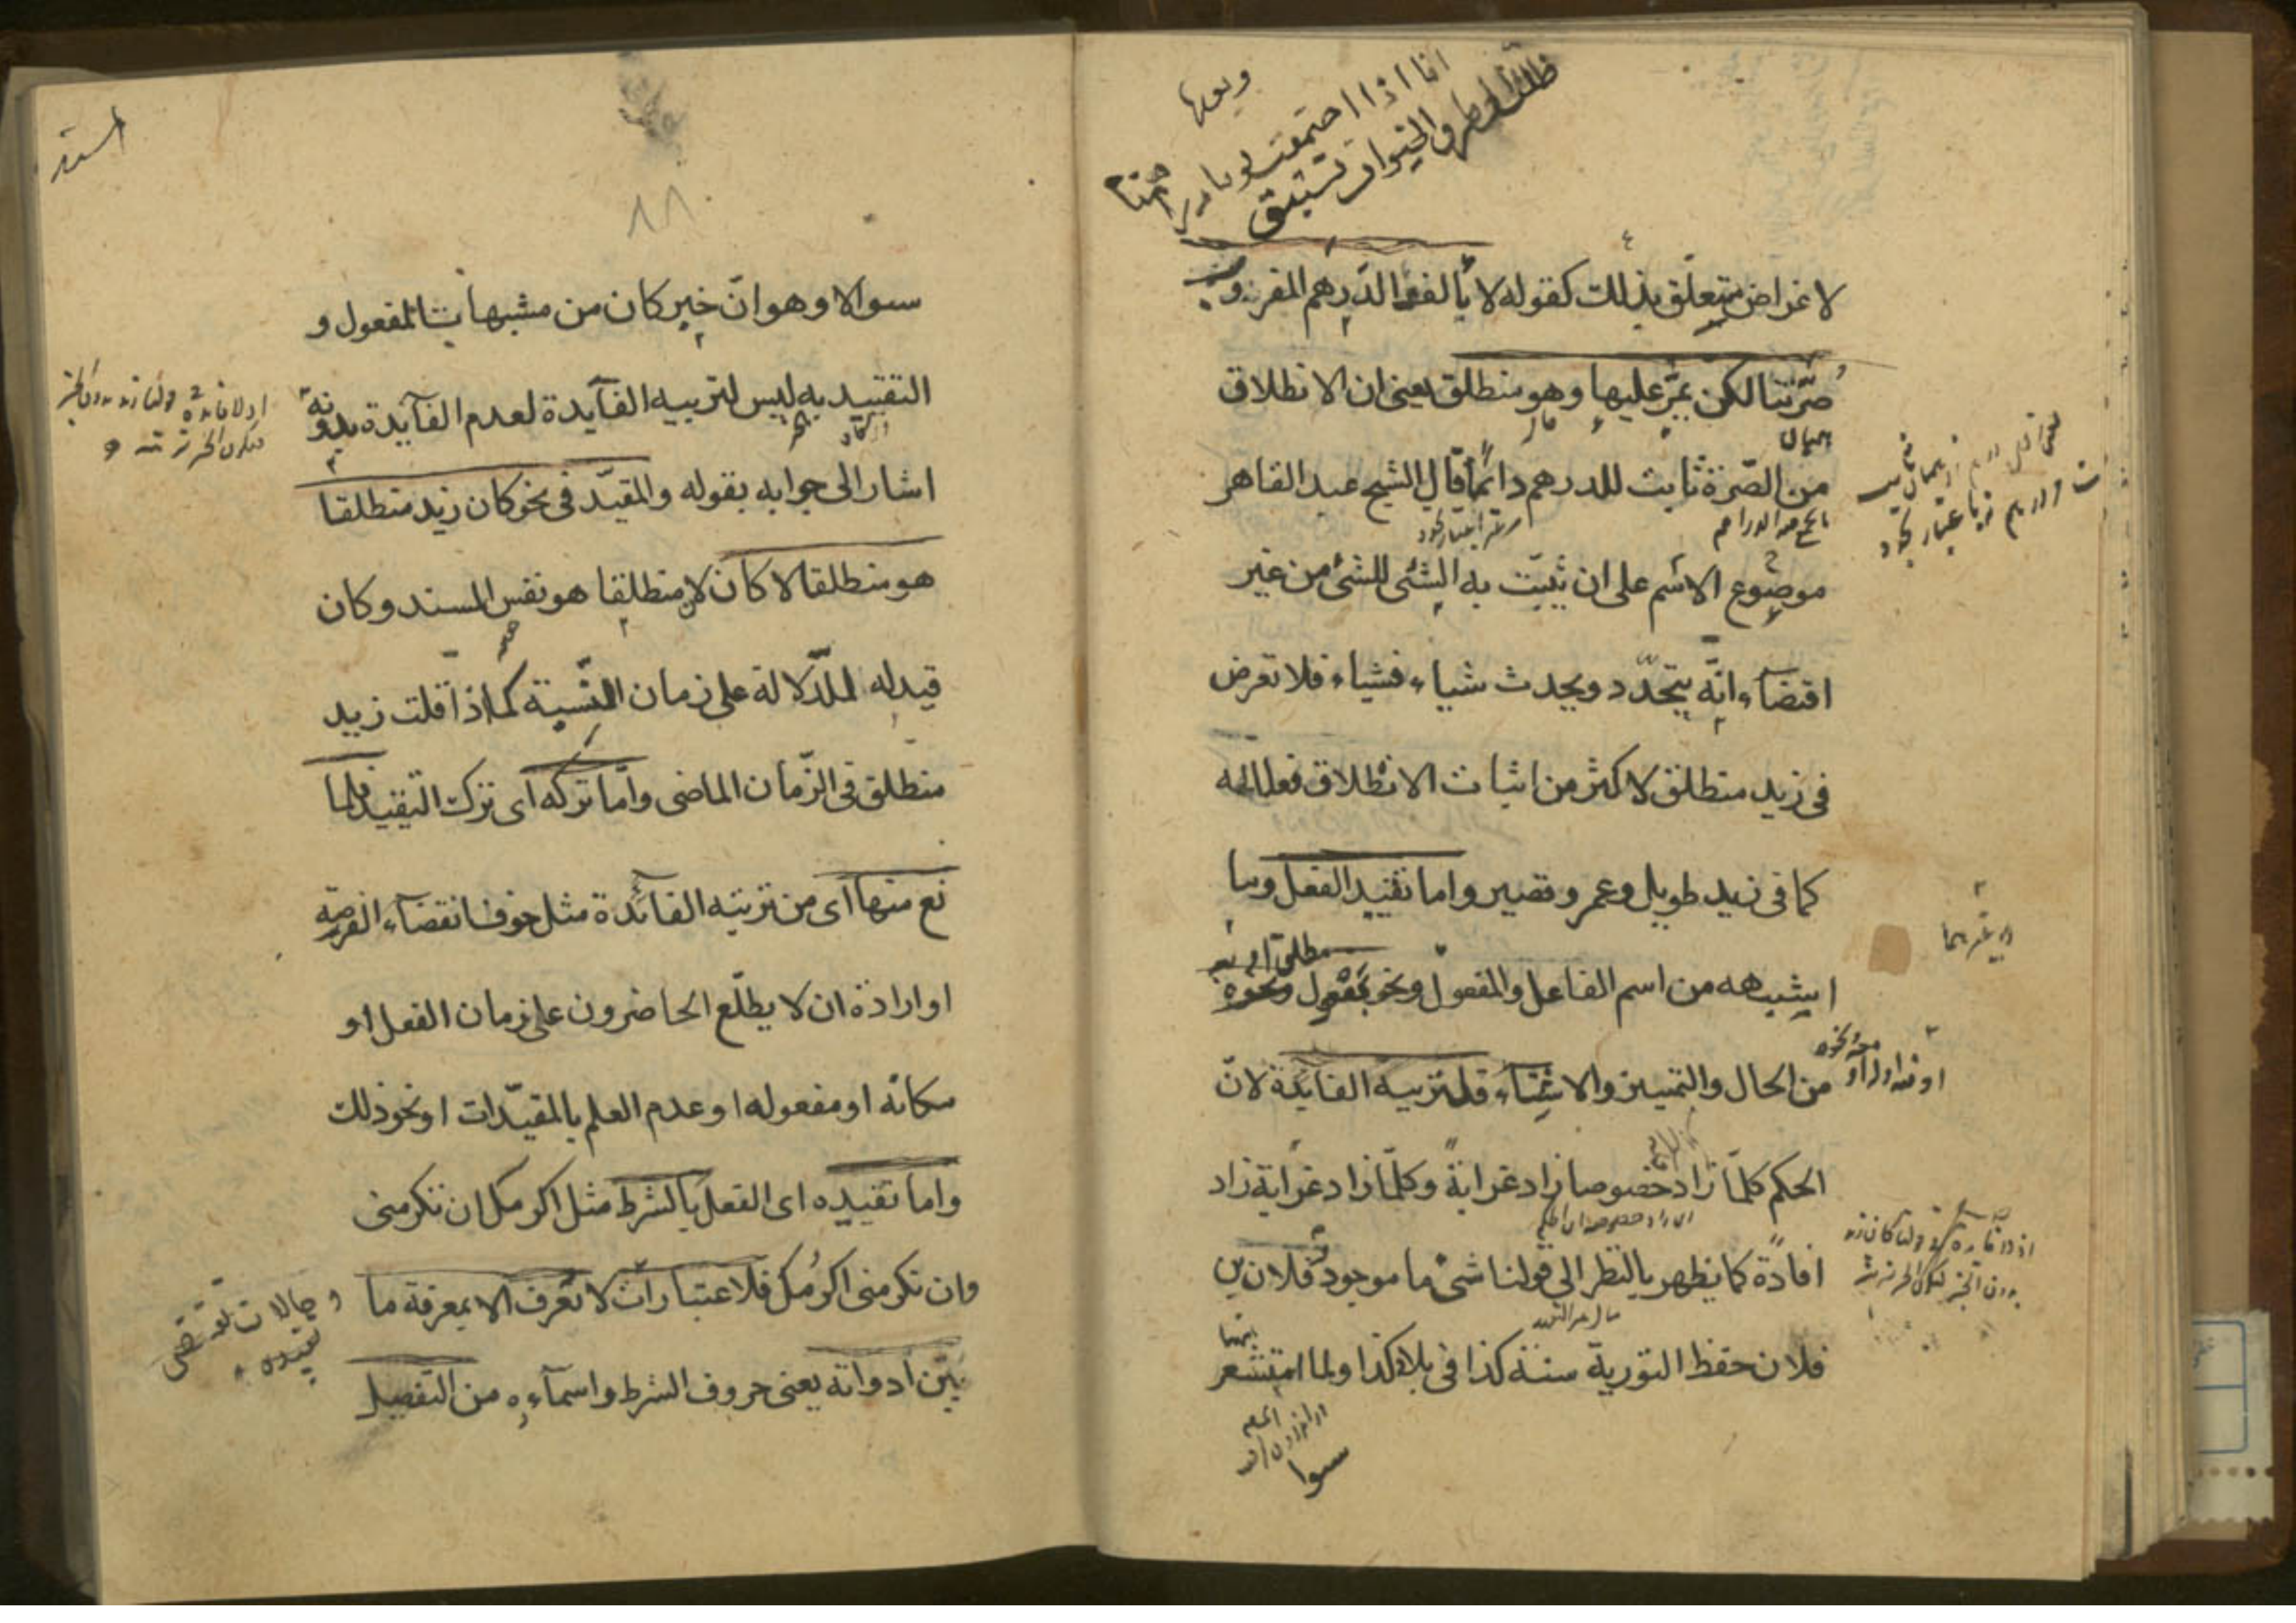 انا اذا اجتمعت يوما دراهمنا
ظلت الى طرق الخيرات تستبق
لاغراض متعلق بذلك كقوله لا يألف الدرهم المضروب
صرتنا لكن يمر عليها وهو منطلق يعنى ان الانطلاق
من الصرة ثابت للدرهم دائما قال الشيخ عبد القاهر
موضوع الاسم على ان يثبت به الشئ للشئ من غير
اقتضاء انه يتجدد ويحدث شياء فشياء فلا تعرض
فى زيد منطلق لاكثر من اثبات الانطلاق فعلا له
كما فى زيد طويل وعمرو قصير واما تقييد الفعل وما
يشبهه من اسم الفاعل والمفعول ونحو بمفعول ونحوه
من الحال والتمييز والاستثناء فلتربية الفايدة لان
الحكم كلما زاد خصوصا زاد غرابة وكلما زاد غرابة زاد
افادة كما يظهر بالنظر الى قولنا شئ ما موجود فلان بن
فلان حفظ التورية سنة كذا فى بلد كذا ولما استشعر
سوا
سوالا وهو ان خبر كان من مشبهات المفعول و
التقييد به ليس لتربيه الفآيدة لعدم الفآيدة بدونه
اشار الى جوابه بقوله والمقيد فى نحو كان زيد منطلقا
هو منطلقا لا كان لان منطلقا هو نفس المسند وكان
قيد له للدلالة على زمان النسبة كما اذا قلت زيد
منطلق فى الزمان الماضى واما تركه اى ترك التقييد فلما
نع منها اى من تربيه الفائدة مثل خوف انقضاء الفرصة
او ارادة ان لا يطلع الحاضرون على زمان الفعل او
مكانه او مفعوله او عدم العلم بالمقيدات او نحو ذلك
واما تقييده اى الفعل بالشرط مثل اكرمك ان تكرمنى
وان تكرمنى اكرمك فلاعتبارات لا تعرف الا بمعرفة ما
وحالات تقتضى
تقييده
بين ادواته يعنى حروف الشرط واسمآءه من التفصيل